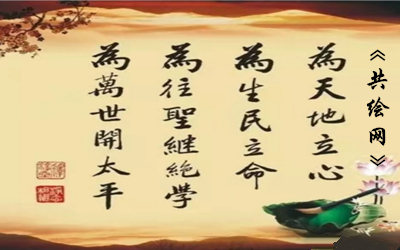 《共绘网》
為天地立心
為生民立命
為往聖継絕學
為萬世開太平